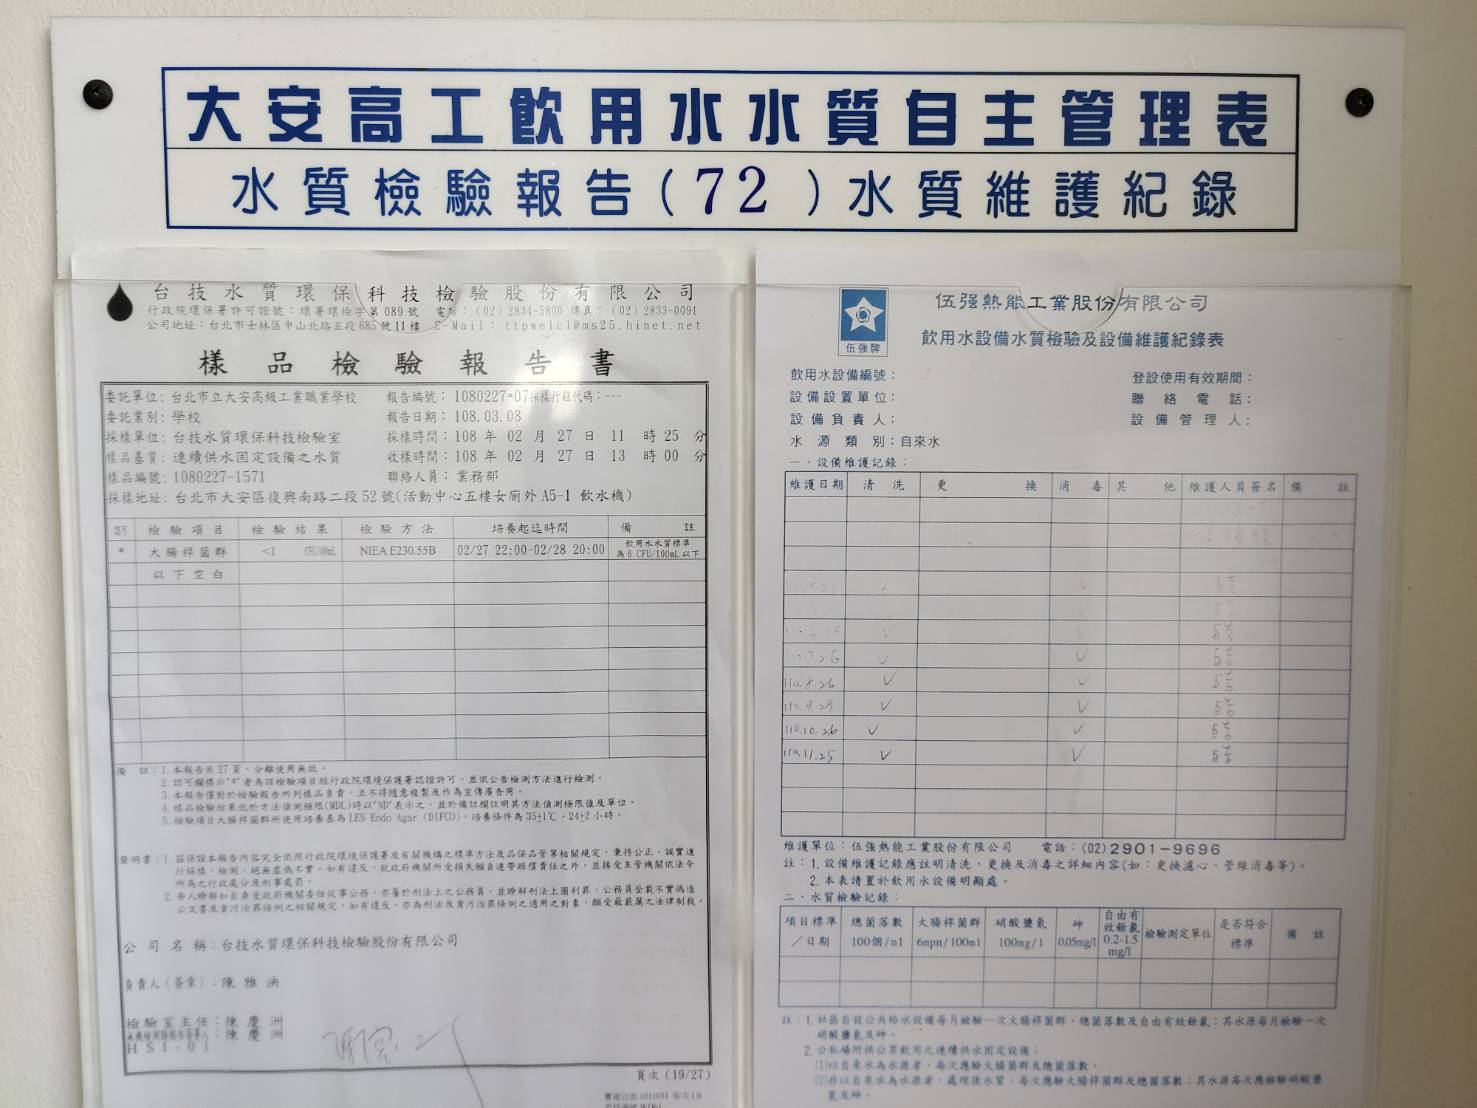 大安高工飲用水水質自主管理表
水質檢驗報告(72)水質維護紀錄
台技水質環保科技檢驗股份有限公司
行政院環保署許可證號：環署環檢字第089號 電話：(02) 2834-5800 傳真：(02) 2833-0091
公司地址：台北市士林區中山北路五段685號11樓 E-Mail：ttpwelcl@ms25.hinet.net
樣品檢驗報告書
委託單位：台北市立大安高級工業職業學校 報告編號：1080227-07採樣行程代碼：---
委託業別：學校 報告日期：108.03.08
採樣單位：台技水質環保科技檢驗室 採樣時間：108 年 02 月 27 日 11 時 25 分
樣品基質：連續供水固定設備之水質 收樣時間：108 年 02 月 27 日 13 時 00 分
樣品編號：1080227-1571 聯絡人員：業務部
採樣地址：台北市大安區復興南路二段52號(活動中心五樓女廁外A5-1 飲水機)
檢驗項目 檢驗結果 檢驗方法 培養起迄時間 備註
* 大腸桿菌群 <1 CFU/100mL NIEA E230.55B 02/27 22:00-02/28 20:00 飲用水水質標準為6 CFU/100mL以下
以下空白
備註：1.本報告共27頁，分離使用無效。
2.認可欄標示"*"者為該檢驗項目經行政院環境保護署認證許可，並依公告檢測方法進行檢測。
3.本報告僅對於檢驗報告所列樣品負責，且不得隨意複製及作為宣傳廣告用。
4.樣品檢驗結果低於方法偵測極限(MDL)時以"ND"表示之，並於備註欄註明其方法偵測極限值及單位。
5.檢驗項目大腸桿菌群所使用培養基為LES Endo Agar (DIFCO)，培養條件為35±1℃、24±2小時。
聲明書：1.茲保證本報告內容完全依照行政院環境保護署及有關機構之標準方法及品保品管等相關規定，秉持公正、誠實進
行採樣、檢測，絕無虛偽不實，如有違反，就政府機關所受損失願負連帶賠償責任之外，並接受主管機關依法令
所為之行政處分及刑事處罰。
2.吾人瞭解如自身受政府機關委任從事公務，亦屬於刑法上之公務員，並瞭解刑法上圖利罪、公務員登載不實偽造
公文書及貪污治罪條例之相關規定，如有違反，亦為刑法及貪污治罪條例之適用之對象，願受最嚴厲之法律制裁。
公司名稱：台技水質環保科技檢驗股份有限公司
負責人(簽章)：陳雅泱
檢驗室主任：陳慶洲
陳慶洲
HSI-01
頁次 (19/27)
伍強牌
伍強熱能工業股份有限公司
飲用水設備水質檢驗及設備維護紀錄表
飲用水設備編號： 登設使用有效期間：
設備設置單位： 聯絡電話：
設備負責人： 設備管理人：
水源類別：自來水
一、設備維護記錄：
維護日期 清洗 更換 消毒 其他 維護人員簽名 備註
110.6.29 ✓ ✓
110.7.26 ✓ ✓
110.8.26 ✓ ✓
110.9.29 ✓ ✓
110.10.26 ✓ ✓
110.11.25 ✓ ✓
維護單位：伍強熱能工業股份有限公司 電話：(02)2901-9696
註：1.設備維護記錄應註明清洗、更換及消毒之詳細內容(如：更換濾心、管線消毒等)。
2.本表請置於飲用水設備明顯處。
二、水質檢驗記錄：
項目標準／日期 總菌落數100個/ml 大腸桿菌群6mpn/100ml 硝酸鹽氮100mg/l 砷0.05mg/l 自由有效餘氯0.2-1.5mg/l 檢驗測定單位 是否符合標準 備註
註：1.社區自設公共給水設備每月檢驗一次大腸桿菌群、總菌落數及自由有效餘氯；其水源每月檢驗一次
硝酸鹽氮及砷。
2.公私場所供公眾飲用之連續供水固定設備：
(1)以自來水為水源者，每次應驗大腸菌群及總菌落數。
(2)非以自來水為水源者，處理後水質，每次應驗大腸桿菌群及總菌落數；其水源每次應檢驗硝酸鹽
氮及砷。